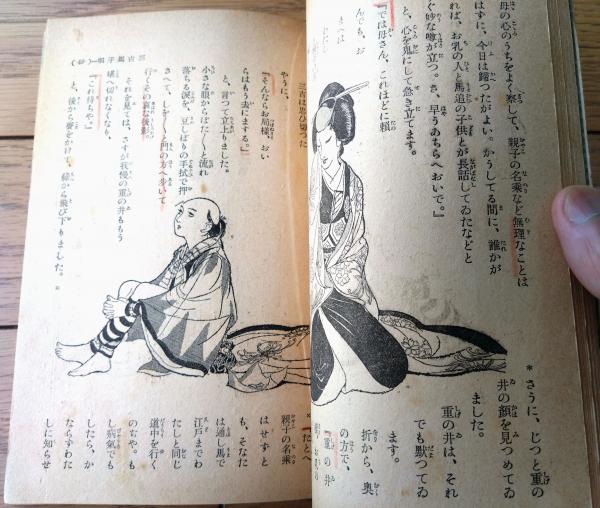 母の心のうちをよく察して、親子の名乗など無理なことは
はずに、今日は歸つたがよい。かうしてる間に、誰かが
れば、お乳の人と馬追の子供とが長話してゐたなどと
ぐ妙な噂が立つ。さ、早うあちらへおいで。』
と、心を鬼にして急き立てます。
『では母さん、これほどに頼
んでも、お
まへは
＊さうに、じつと重の
井の顔を見つめてゐ
ました。
重の井は、それ
でも默つてゐ
ます。
折から、奥
の方で、
『重の井
三吉は思ひ切つた
やうに、
『そんならお局様、おい
らはもう去にまする。』
と、言つて立上りました。
小さな眼からはた〱と流れ
落ちる涙を、豆しぼりの手拭で押
さへて、しを〱と門の方へ歩いて
行くその哀な後影。
それを見ては、さすが我慢の重の井ももう
堪へ切れなくなり、
『これ待ちや。』
と、後から聲をかけて、縁から飛び下りました。＊
＊『たとへ
親子の名乗
はせずと
も、そなた
は通し馬で
江戸までわ
たしと同じ
道中を行く
のぢや。も
し病氣でも
したら、か
ならずわた
しに知らせ